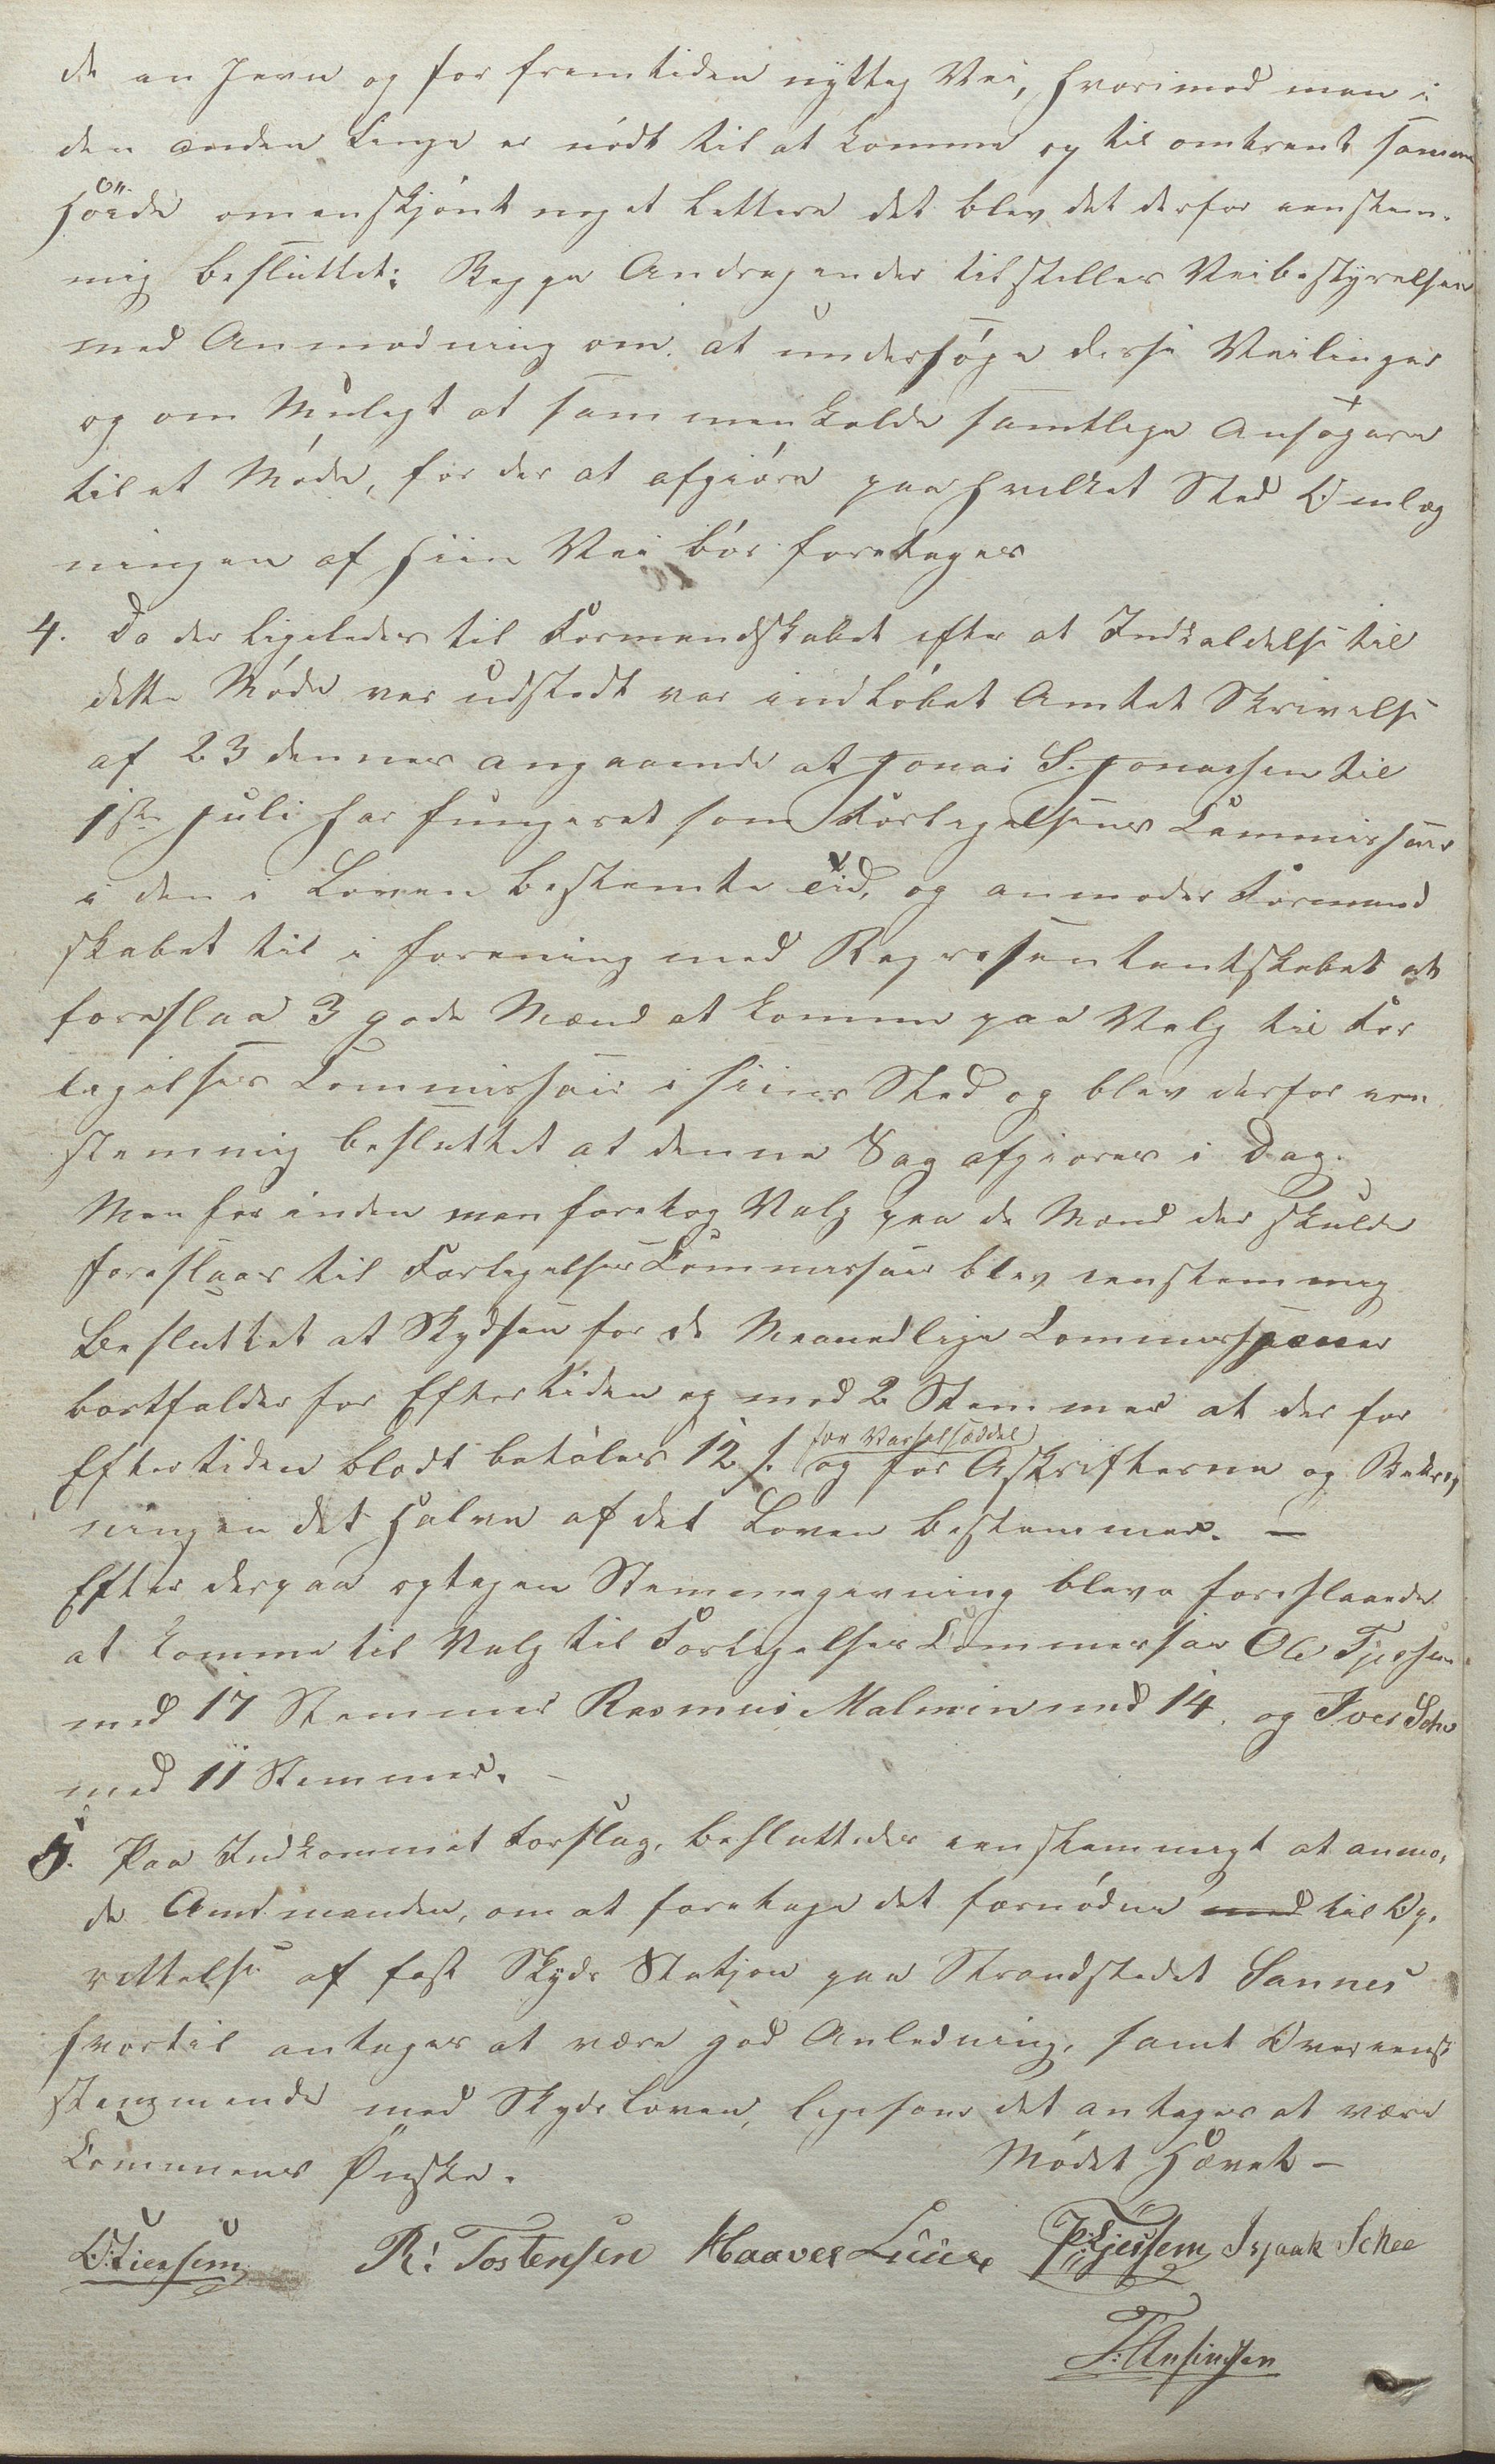 de en Jevn og for fremtiden nyttig Vei, hvorimod man i
den anden Linge er nödt til at komme op til omtrent samme
Höide omenskjönt noget lettere det blev det derfor eenstem-
mig besluttet: Begge Andragender tilstilles Veibestyrelsen
med Anmodning om at undersöge disse Veilinger
og om Muligt at sammenkalde samtlige Ansögere
til et Möde, for der at afgiöre paa hvilket Sted Omlæg
ningen af hiin Vei bör foretages
4. Da der ligeledes til Formandskabet efter at Indkaldelse til
dette Möde var udstedt var indlöbet Amtet Skrivelse
af 23 dennes angaaende at Jonas S. Jonassen til
1ste Juli har fungeret som Forligelsens Commissair
i den i Loven bestemte Tid, og anmoder Formand
skabet til i forening med Repræsentantskabet at
foreslaa 3 gode Mænd at komme paa Valg til For
legelses Commissair i hiins Sted og blev derfor een
stemmig besluttet at denne Sag afgiöres i Dag.
Men for inden man foretog Valg paa de Mænd der skulde
foreslaaes til Forligelses Commissair blev eenstemmig
Besluttet at Skydsen for de Maanedlige Commissioner
bortfalder for Eftertiden og med 2 Stemmer at der for
for Varselsseddel
Eftertiden blodt betales 12 s. og for Askrifterne og Bekreg
ningen det halve af det Loven bestemmer. —
Efter derpaa optagen Stemmegivning bleve foreslaaede
at komme til Valg til Forligelses Commissair Ole Tjessem
med 17 Stemmer Rasmus Malmin med 14. og Iver Scho
med 11 Stemmer. –
5. Paa Indkommet Forslag, besluttedes eenstemmigt at anmo-
de Amtmanden, om at foretage det fornödne med til Op-
rettelse af fast Skyds Station paa Strandstedet Sannes
hvortil antages at være god Anledning, samt Overeens
stemmende med Skydsloven, ligesom det antages at være
Communens Önske. Mödet Hævet –
R: Tostensen Haaver Luura P: Tjessem Isaak Schee
T: Assinsen